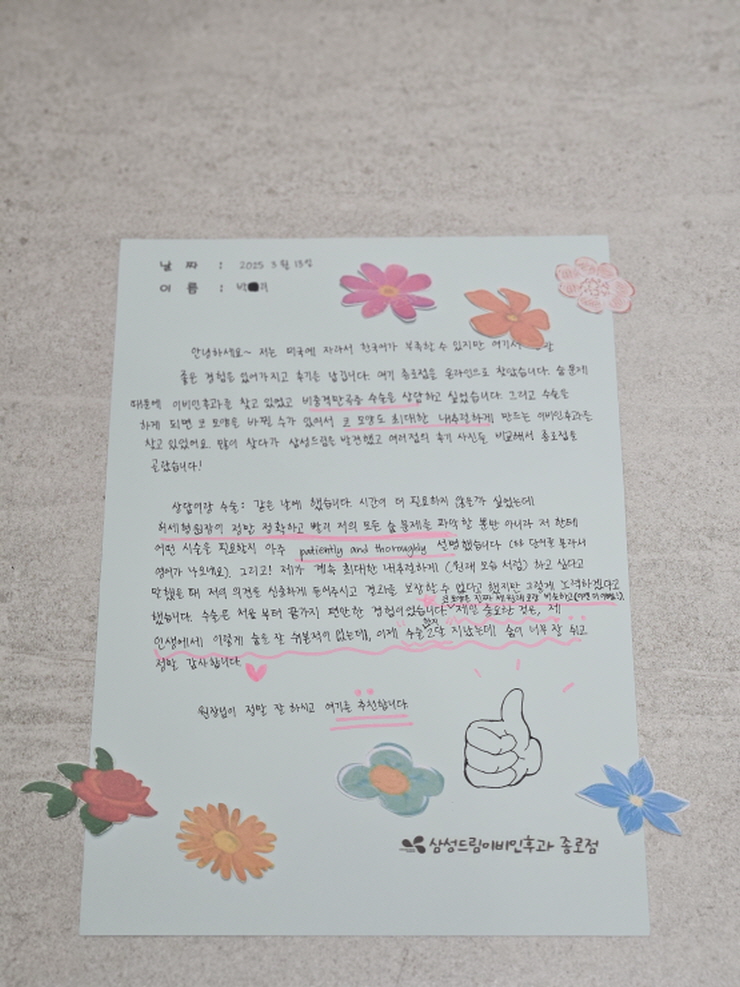 날 짜 : 2025 3월 13일
이 름 : 박
안녕하세요~ 저는 미국에 자라서 한국어가 부족할 수 있지만 여기서
좋은 경험은 있어가지고 후기은 남깁니다. 여기 종로점을 온라인으로 찾았습니다. 숨 문제
때문에 이비인후과를 찾고 있었고 비중격만곡증 수술을 상담하고 싶었습니다. 그리고 수술을
하게 되면 코 모양은 바뀔 수가 있어서 코 모양도 최대한 내추럴하게 만드는 이비인후과를
찾고 있었어요. 많이 찾다가 삼성드림은 발견했고 여러점의 후기 사진들 비교해서 종로점을
골랐습니다!
상담이랑 수술: 같은 날에 했습니다. 시간이 더 필요하지 않을까 싶었는데
허세형원장이 정말 정확하고 빨리 저의 모든 숨 문제을 파악할 뿐만 아니라 저 한테
어떤 시술은 필요한지 아주 patiently and thoroughly 설명했습니다 (
영어가 나오네요). 그리고! 제가 계속 최대한 내추럴하게 (원래 모습 처럼) 하고 싶다고
말했은 때 저의 의견은 신중하게 들어주시고 결과을 보장할 수 없다고 했지만 그렇게 노력하겠다고
코 모양은 진짜 제 원래 코랑 비슷하고
했습니다. 수술은 처음 부터 끝가지 편안한 경험이었습니다. 제일 중요한 것은, 제
인생에서 이렇게 숨은 잘 쉬본적이 없는데, 이제 수술한지 2달 지났는데 숨이 너무 잘 쉬고
정말 감사합니다.
원장님이 정말 잘 하시고 여기를 추천합니다.
삼성드림이비인후과 종로점